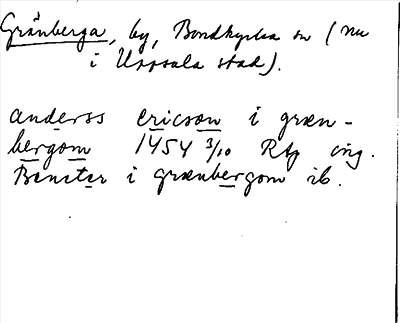 Gränberga, by, Bondkyrka sn (nu
i Uppsala stad).
anderss ericson i græn-
bergom 1454 3/10 RAp orig.
Bencter i grænbergom ib.